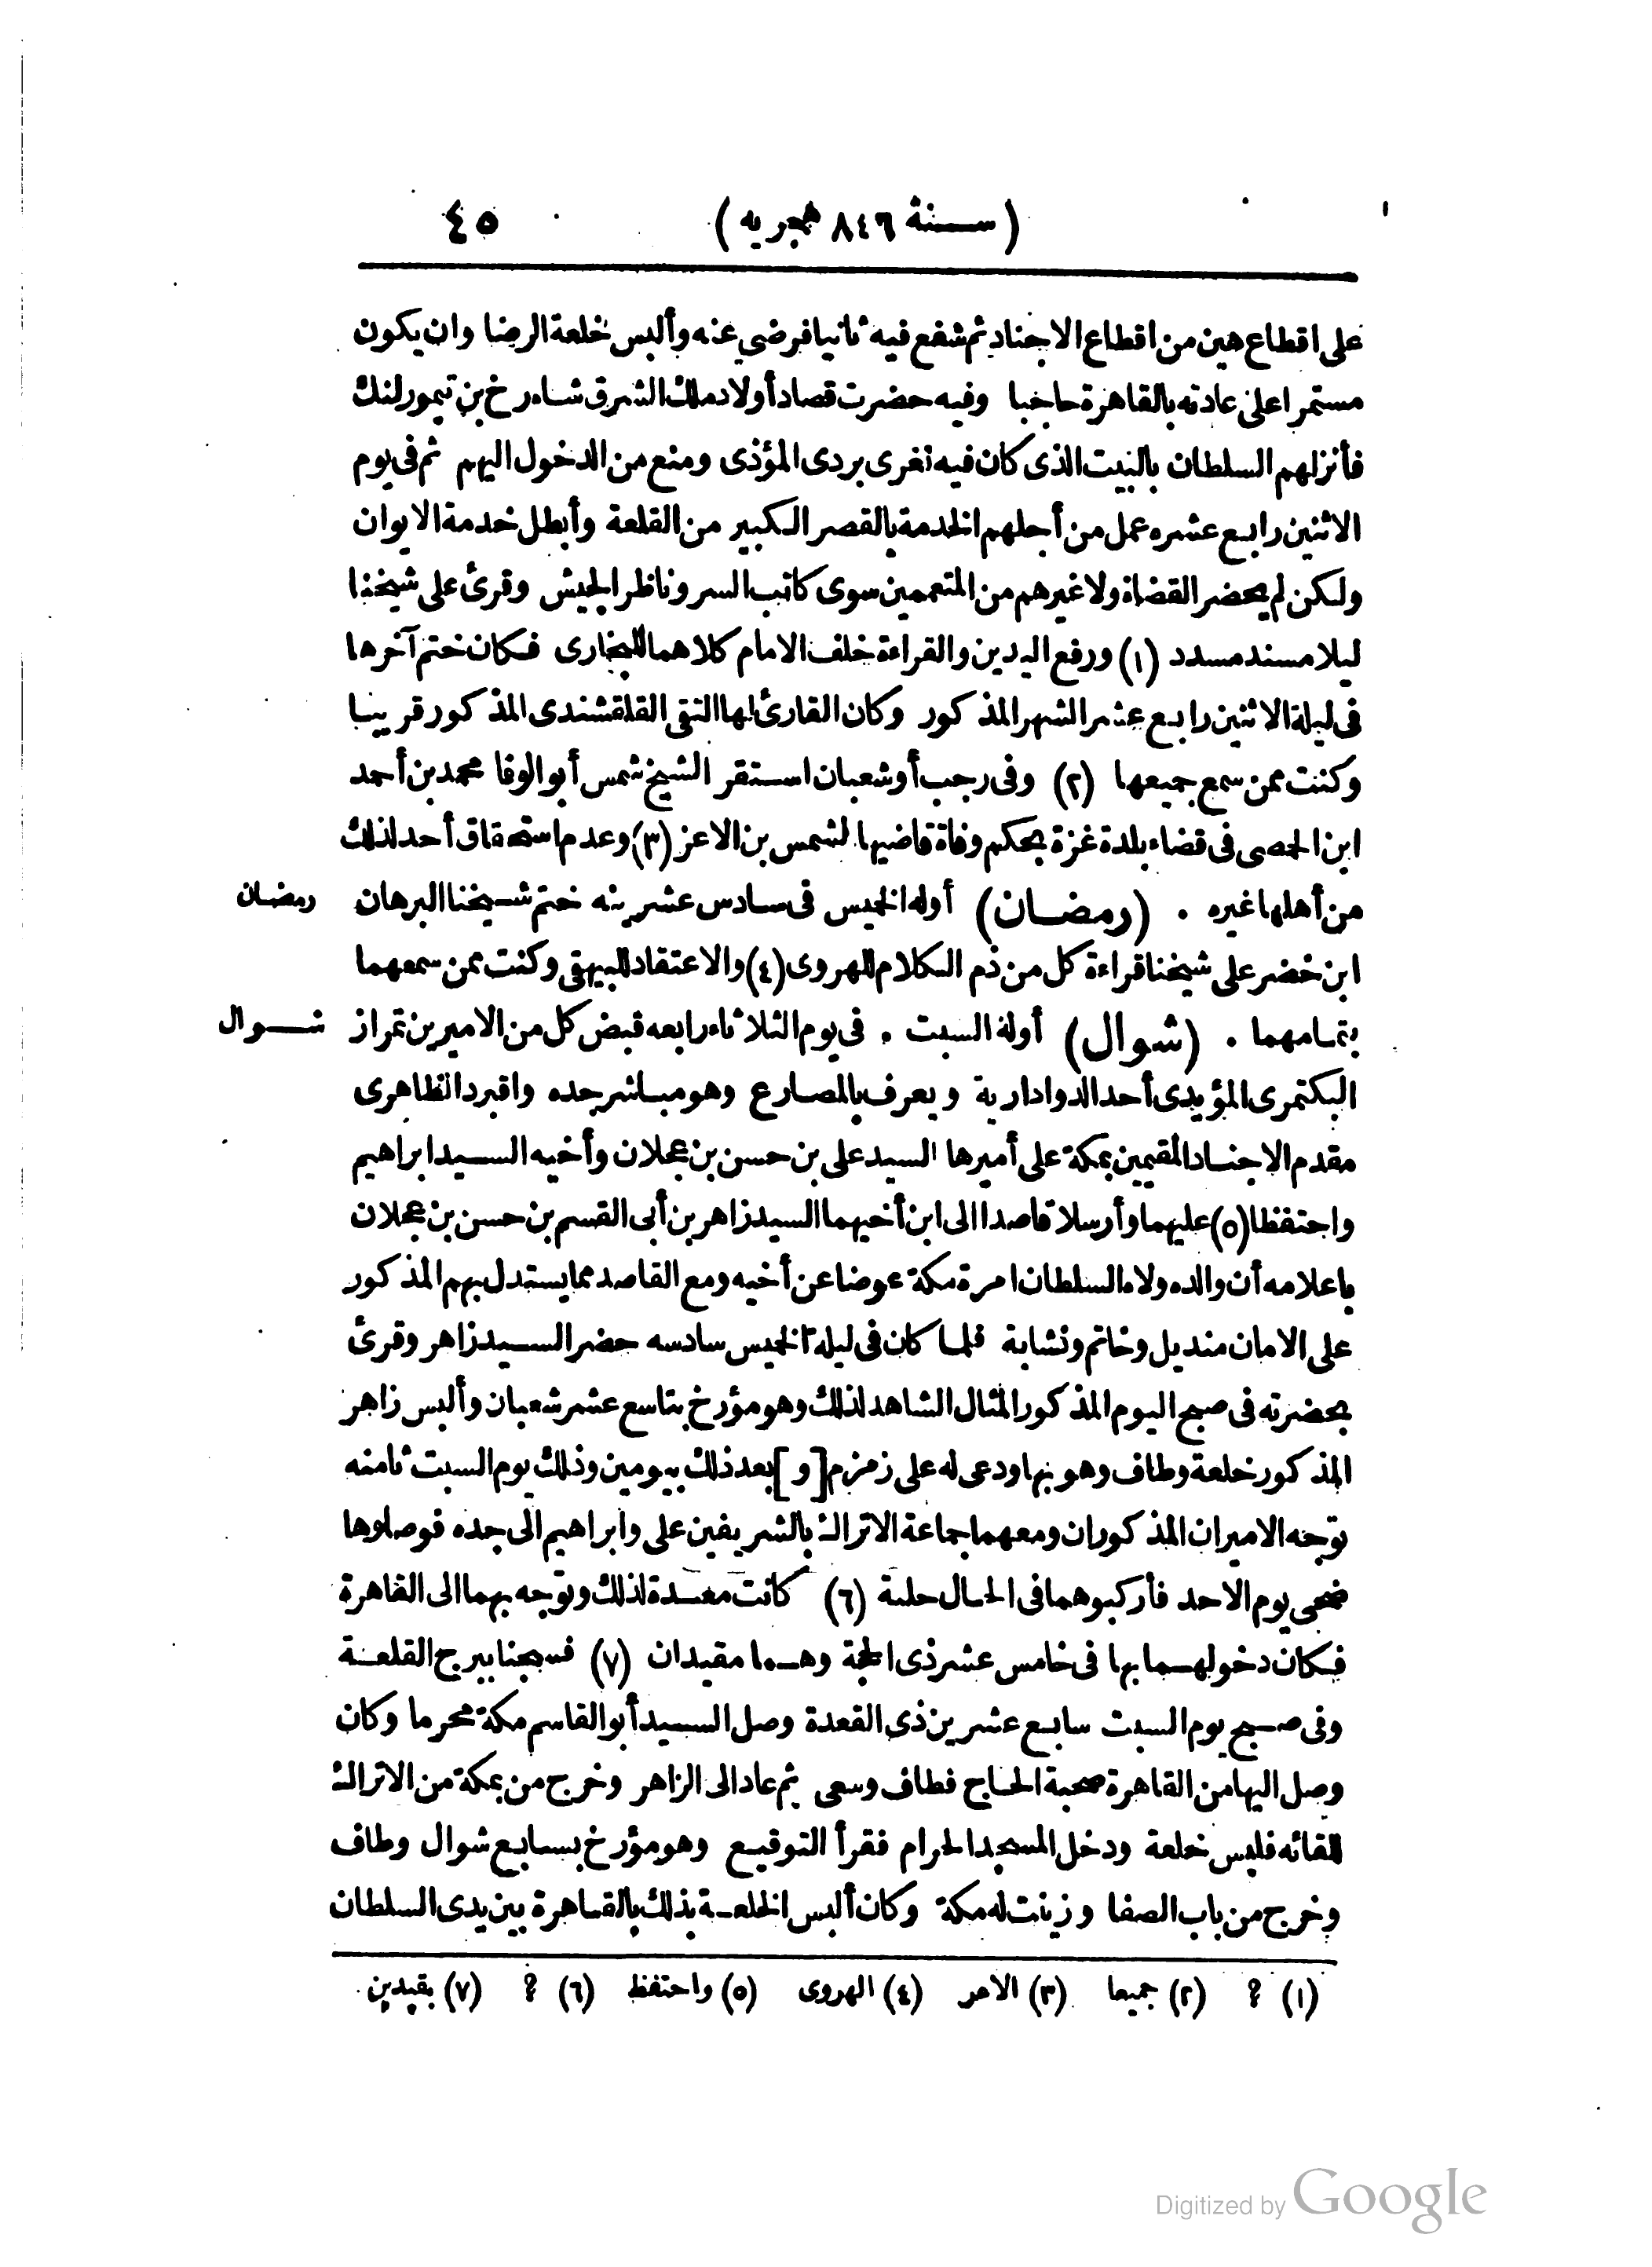 (سنة ٨٤٦ هجريه) ٤٥
على اقطاع هين من اقطاع الاجناد ثم شفع فيه ثانيا فرضي عنه وألبس خلعة الرضا وان يكون
مستمرا على عادته بالقاهرة حاجبا وفيه حضرت قصاد أولاد ملك الشرق شاه رخ بن تيمورلنك
فأنزلهم السلطان بالبيت الذى كان فيه تغرى بردى المؤذى ومنع من الدخول اليهم ثم فى يوم
الاثنين رابع عشره عمل من أجلهم الخدمة بالقصر الكبير من القلعة وأبطل خدمة الايوان
ولكن لم يحضر القضاة ولا غيرهم من المتعممين سوى كاتب السر وناظر الجيش وقرئ على شيخنا
ليلا مسند مسدد (١) ورفع اليدين والقراءة خلف الامام كلاهما للبخارى فكان ختم آخرها
فى ليلة الاثنين رابع عشر الشهر المذكور وكان القارئ لها التقى القلقشندى المذكور قريبا
وكنت ممن سمع جميعها (٢) وفى رجب أو شعبان استقر الشيخ شمس أبو الوفا محمد بن أحمد
ابن الحمصى فى قضاء بلدة غزة بحكم وفاة قاضيها لشمس بن الاعز (٣) وعدم استحقاق أحد لذلك
من أهلها غيره . (رمضان) أوله الخميس فى سادس عشرينه ختم شيخنا البرهان
رمضان
ابن خضر على شيخنا قراءة كل من ذم الكلام للهروى (٤) والاعتقاد للبيهقى وكنت ممن سمعهما
بتمامهما . (شوال) أوله السبت . فى يوم الثلاثاء رابعه قبض كل من الاميرين تمراز
شوال
البكتمرى المؤيدى أحد الدوادارية ويعرف بالمصارع وهو مباشر جده واقبردا الظاهرى
مقدم الاجناد المقيمين بمكة على أميرها السيد على بن حسن بن عجلان وأخيه السيد ابراهيم
واحتفظا (٥) عليهما وأرسلا قاصدا الى ابن أخيهما السيد زاهر بن أبى القسم بن حسن بن عجلان
باعلامه أن والده ولاه السلطان امرة مكة عوضا عن أخيه ومع القاصد مما يستدل بهم المذكور
على الامان منديل وخاتم ونشابة فلما كان فى ليلة الخميس سادسه حضر السيد زاهر وقرئ
بحضرته فى صبح اليوم المذكور المثال الشاهد لذلك وهو مؤرخ بتاسع عشر شعبان وألبس زاهر
المذكور خلعة وطاف وهو بها ودعى له على زمزم [و] بعد ذلك بيومين وذلك يوم السبت ثامنه
توجه الاميران المذكوران ومعهما جماعة الاتراك بالشريفين على وابراهيم الى جده فوصلوها
ضحى يوم الاحد فأركبوهما فى الحال جلبة (٦) كانت معدة لذلك وتوجه بهما الى القاهرة
فكان دخولهما بها فى خامس عشر ذى الحجة وهما مقيدان (٧) فسجنا ببرج القلعة
وفى صبح يوم السبت سابع عشرين ذى القعدة وصل السيد أبو القاسم مكة محرما وكان
وصل اليها من القاهرة صحبة الحاج فطاف وسعى ثم عاد الى الزاهر وخرج من بمكة من الاتراك
للقائه فلبس خلعة ودخل المسجد الحرام فقرأ التوقيع وهو مؤرخ بسابع شوال وطاف
وخرج من باب الصفا وزينت له مكة وكان ألبس الخلعة بذلك بالقاهرة بين يدى السلطان
(١) ؟ (٢) جميعا (٣) الامر (٤) الهروى (٥) واحتفظ (٦) ؟ (٧) بقيدين
Digitized by Google